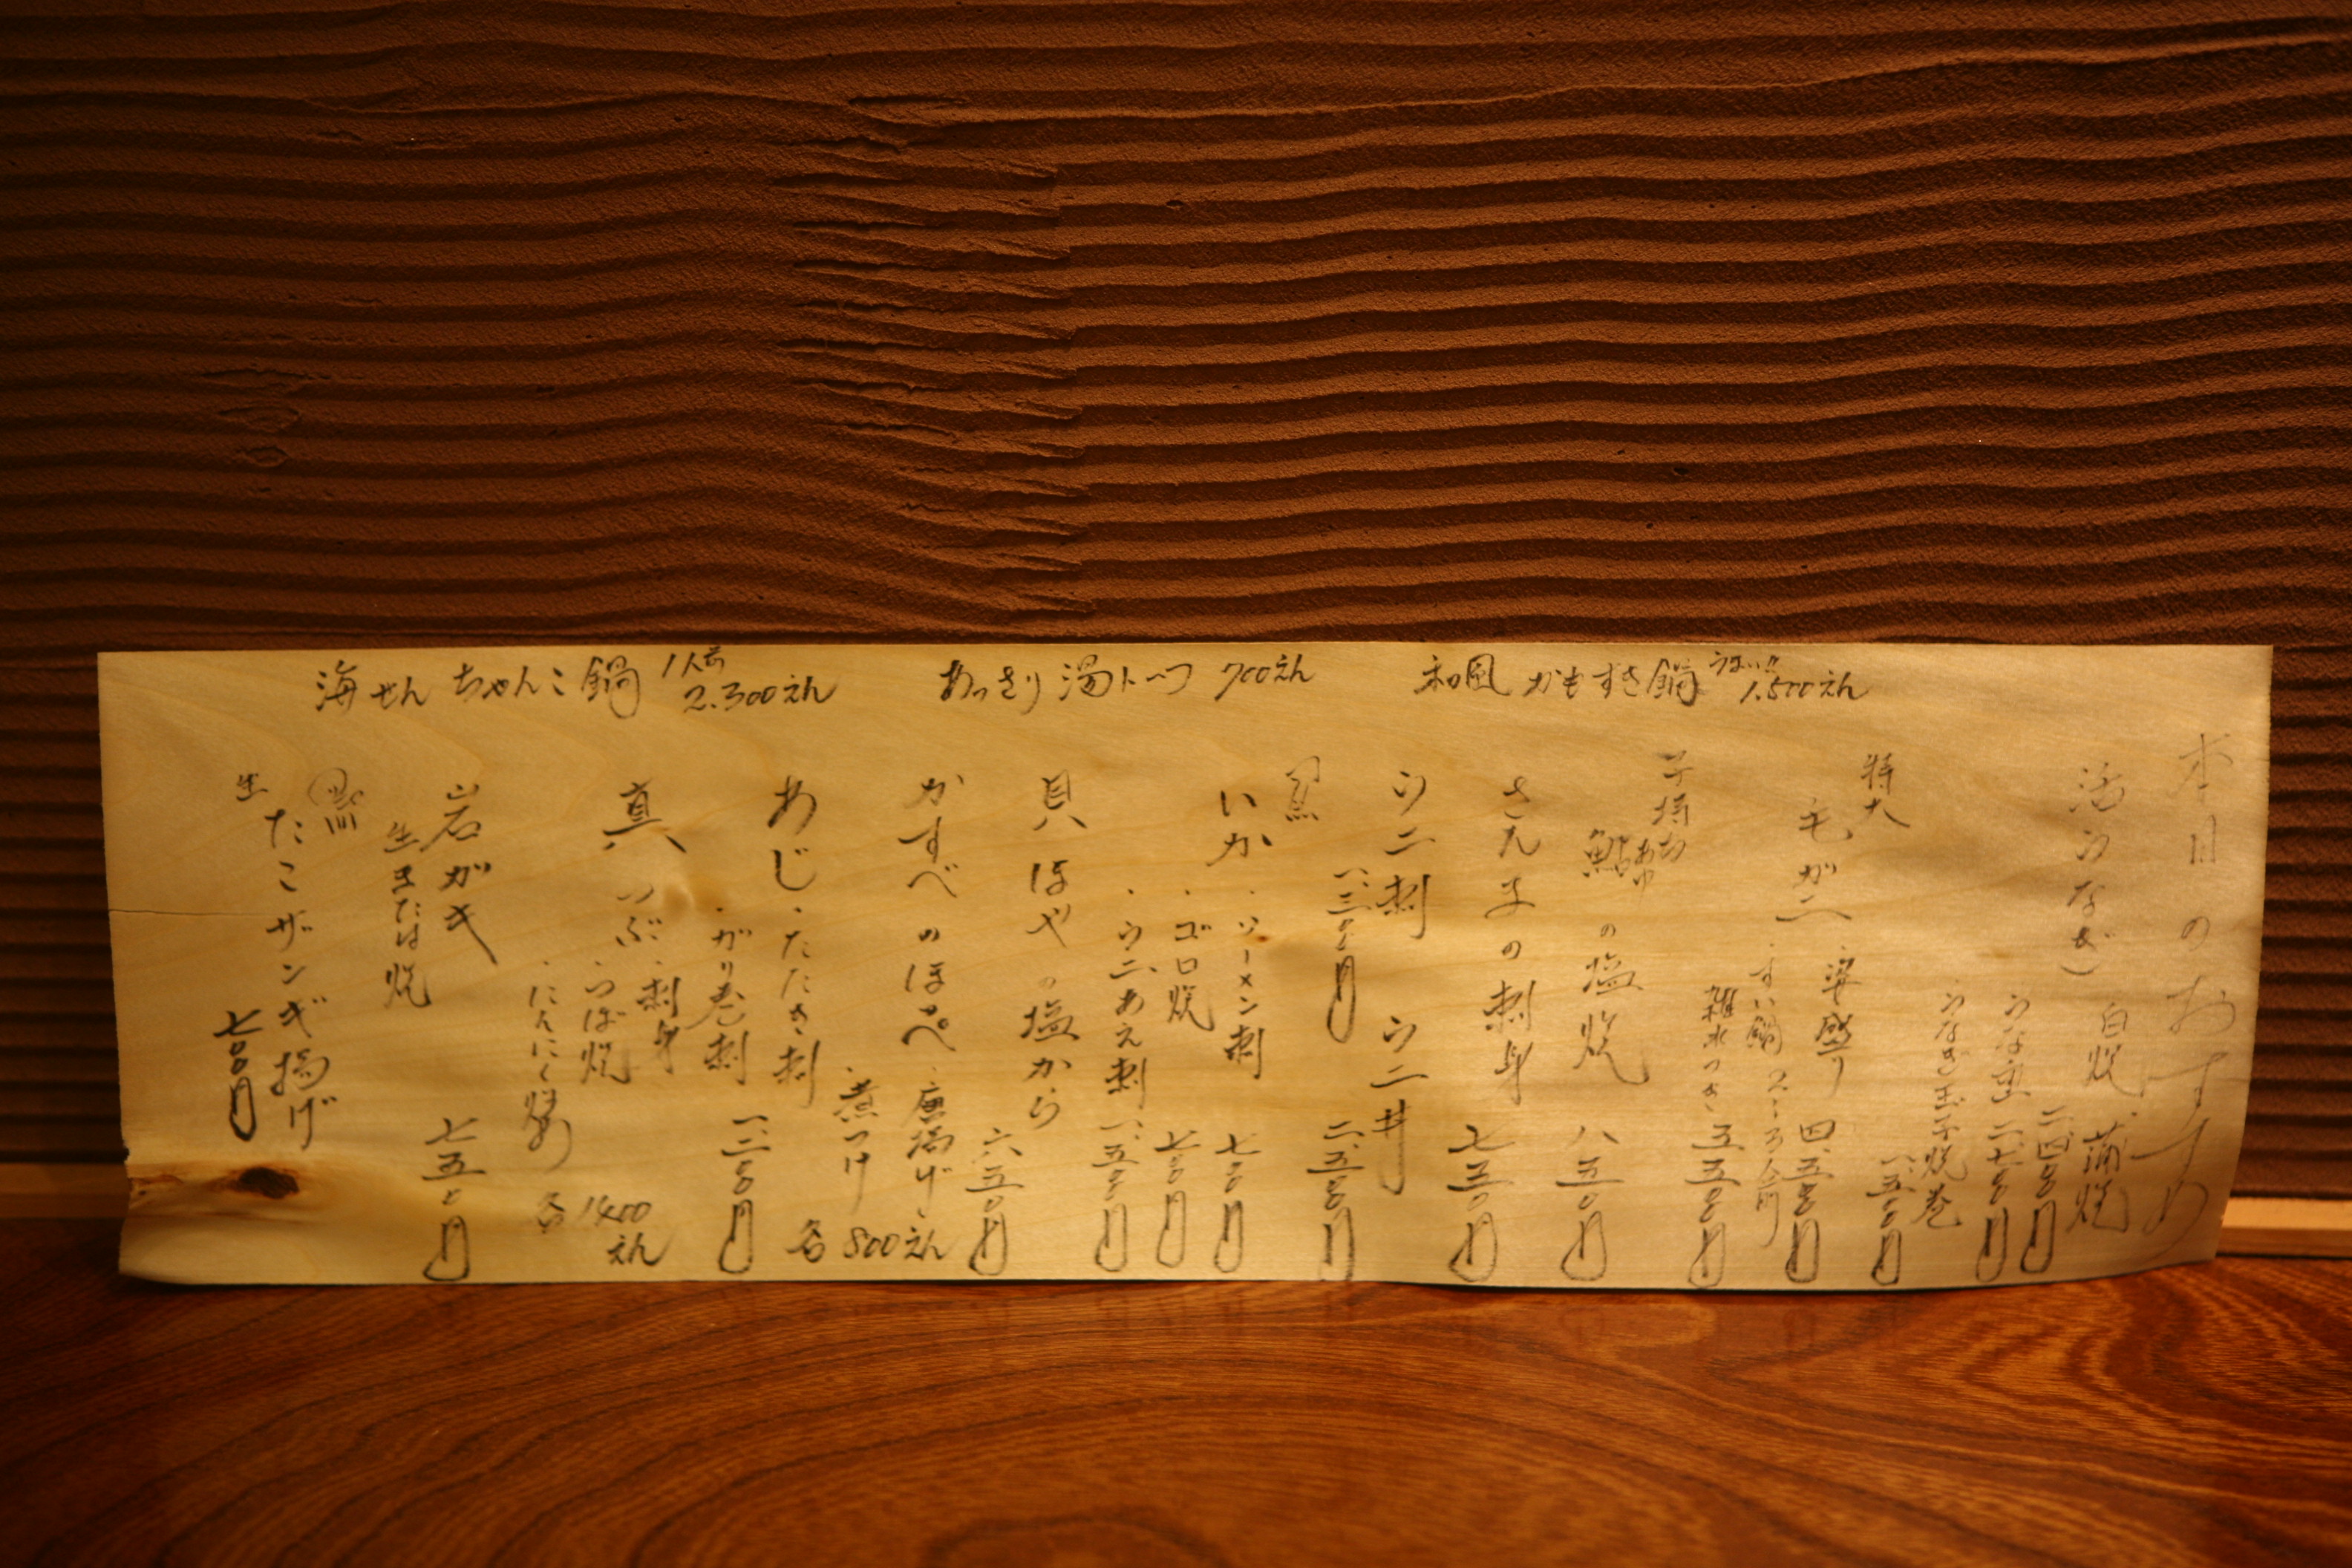 海せんちゃんこ鍋 1人前 2.300えん
あっさり湯トーフ 700えん
和風かもすき鍋 うまい!! 1.500えん
本日のおすすめ
活うなぎ 白焼、蒲焼 二、四〇〇円
うな重 二、七〇〇円
うなぎ玉子焼巻 一、五〇〇円
特大
毛がに 姿盛り 四、五〇〇円
・すい鍋
雑水つき 五、五〇〇円
子持ち
鮎 あゆ の塩焼 八五〇円
さんまの刺身 七五〇円
ウニ刺 一、三〇〇円
ウニ丼 二、五〇〇円
いか ・ソーメン刺 七〇〇円
・ゴロ焼 七〇〇円
・ウニあえ刺 一、五〇〇円
貝ほやの塩から 六五〇円
かすべのほっぺ ・唐揚げ
・煮つけ 各800えん
あじ ・たたき刺
・がり巻刺 一、二〇〇円
真つぶ ・刺身
・つぼ焼
・にんにく焼 各1400えん
岩がき
生または焼 七五〇円
生たこザンギ揚げ 七〇〇円